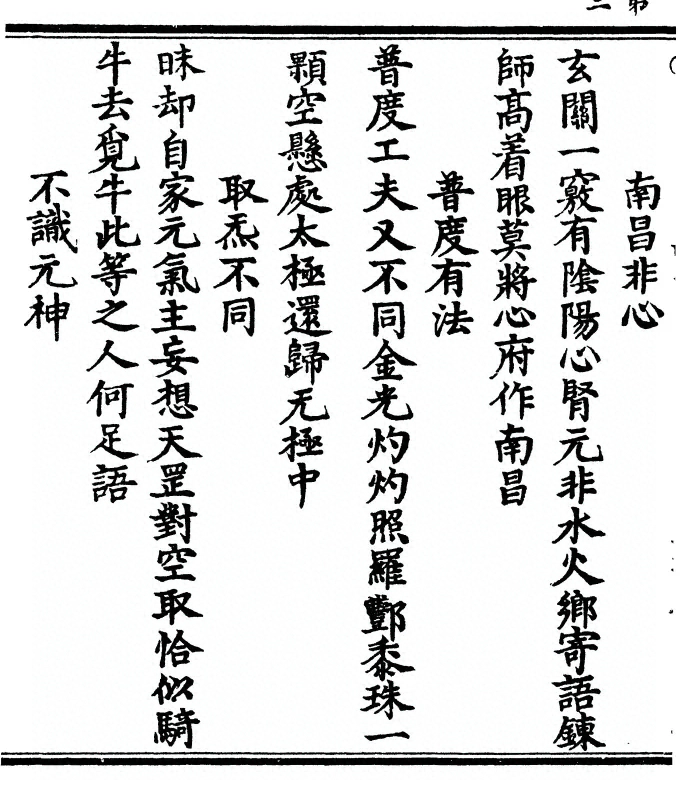 南昌非心
玄關一竅有陰陽心腎元非水火鄉寄語鍊
師髙着眼莫將心府作南昌
普度有法
普度工夫又不同金光灼灼照羅酆黍珠一
顆空懸處太極還歸无極中
取炁不同
昧却自家元氣主妄想天罡對空取恰似騎
牛去覓牛此等之人何足語
不識元神